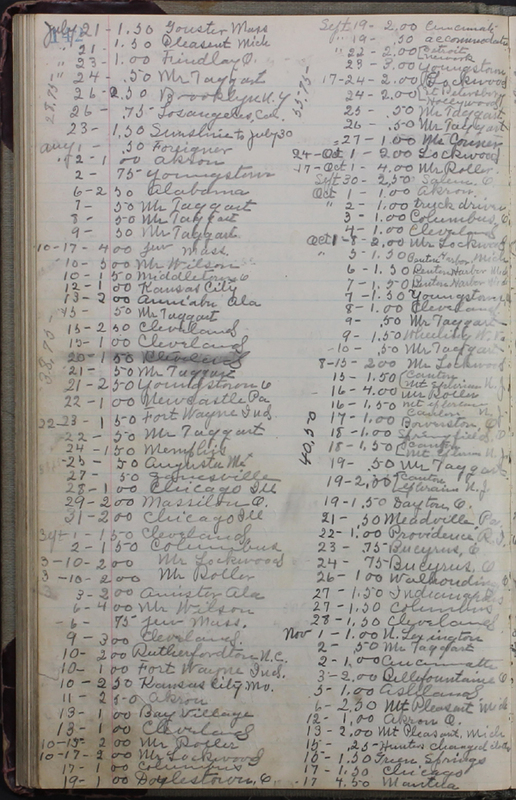 July 21 - 1.50 Fouster Mass
" 21 - 1.50 Pleasent Mich
" 23 - 1.00 Findlay O.
" 24 - .50 Mr Taggart
26 - 2.50 Brooklyn N.Y
26 - .75 Los angeles, Cal.
23 - 1.50 Sunshine to July 30
aug 1 - .50 Foreigner
" 2 - 1 00 akron
2 - 75 Youngstown
6 - 2 50 alabama
7 - 50 Mr Taggart
8 - 50 Mr Taggart
9 - 50 Mr Taggart
10-17 - 4 00 Mass.
10 - 5 00 Mr Wilson
10 - 1 50 Middletown O
12 - 1 00 Kansas City
13 - 2 00 Ala
15 - 50 Mr Taggart
15 - 2 50 Cleveland
15 - 1 00 Cleveland
20 - 1 50 Cleveland
21 - 50 Mr Taggart
21 - 2 50 Youngstown O
22 - 1 00 Newcastle Pa
22-23 - 1 50 Fort Wayne Ind.
22 - 50 Mr Taggart
24 - 1 50 Memphis
25 - 50 Augusta Me
27 - 50 Zanesville
28 - 1 00 Chicago Ill
29 - 2 00 Massillon O.
31 - 2 00 Chicago Ill
Sept - 1 - 1 50 Cleveland
2 - 1 50 Columbus
3 - 10 - 2 00 Mr Lockwood
3 - 10 - 2 00 Mr Roller
3 - 2 00 Anister Ala
6 - 4 00 Mr Wilson
6 - 75 Mass.
9 - 3 00 Cleveland.
10 - 2 00 Rutherfordton N.C.
10 - 1 00 Fort Wayne Ind.
10 - 2 50 Kansas City Mo.
11 - 2 50 Akron
13 - 1 00 Bay Village
13 - 1 00 Cleveland
10-15 - 2 00 Mr Roller
10-17 - 2 00 Mr Lockwood
17 - 1 00 Columbus
19 - 1 00 Doylestown, O
28.75
38.75
Sept 19 - 2.00 Cincinnati
" 19 - .50 accommodate
" 22 - 2.00 Detroit
23 - 3.00 Youngstown
17-24 - 2.00 Lockwood
24 - 2.00 St Petersburg
Hollywood
25 - .50 Mr Taggart
26 - .50 Mr Taggart
27 - 1.00 Mr Conner
24 - Oct 1 - 2.00 Lockwood
17 - Oct 1 - 4.00 Mr Roller
Sept 30 - 2.50 Salem O.
Oct 1 - 1.00 akron
" 2 - 1.00 truck driver
3 - 1.00 Columbus, O
4 - 1.00 Cleveland
Oct 1 - 8 - 2.00 Mr Lockwood
" 5 - 1.50 Benton Harbor Mich
6 - 1.50 Benton Harbor Mich
7 - 1.50 Benton Harbor Mich
7 - 1.50 Youngstown
8 - 1.00 Cleveland
9 - .50 Mr Taggart
9 - 1.50 Wheeling W. Va
10 - .50 Mr Taggart
8-15 - 2.00 Mr Lockwood
15 - 1.50 Canton
Mt N.J.
16 - 4.00 Mr Roller
16 - 1.50 Mt
N.J.
17 - 1.00 Bowerston, O
18 - 1.00 Springfield, O
18 - 1.50 Canton
Mt N.J.
19 - .50 Mr Taggart
19 - 2.00 Canton
N.J.
19 - 1.50 Dayton O.
21 - .50 Meadville Pa
22 - 1.00 Providence R.I.
23 - .75 Bucyrus, O
24 - .75 Bucyrus, O
26 - 1.00 Walhonding
27 - 1.50 Indianapolis
27 - 1.50 Columbus
28 - 1.50 Cleveland
Nov 1 - 1.00 N. Lexington
2 - .50 Mr Taggart
2 - 1.00 Cincinnatti
3 - 2.00 Bellfountaine O
5 - 1.00 Ashland
6 - 2.50 Mt Pleasant Mich
12 - 1.00 Akron O.
13 - 2.00 Mt Pleasant, Mich
15 - .25 Hunter changed
15 - 1.50 Green Springs
17 - 1.50 Chicago
17 - 4.50 Mantua
40.50